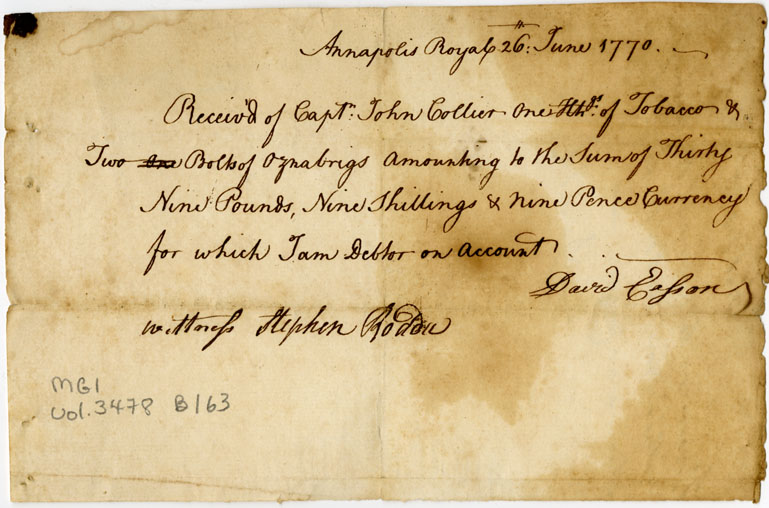 Annapolis Royal 26th: June 1770.
Receiv'd of Capt. John Collier One Hhds. of Tobacco &
Two One Bolts of Oznabrigs amounting to the Sum of Thirty
Nine Pounds, Nine Shillings & Nine Pence Currency
for which I am Debtor on Account
David Easson
wittness Stephen
MG1
Vol. 3478 B/63